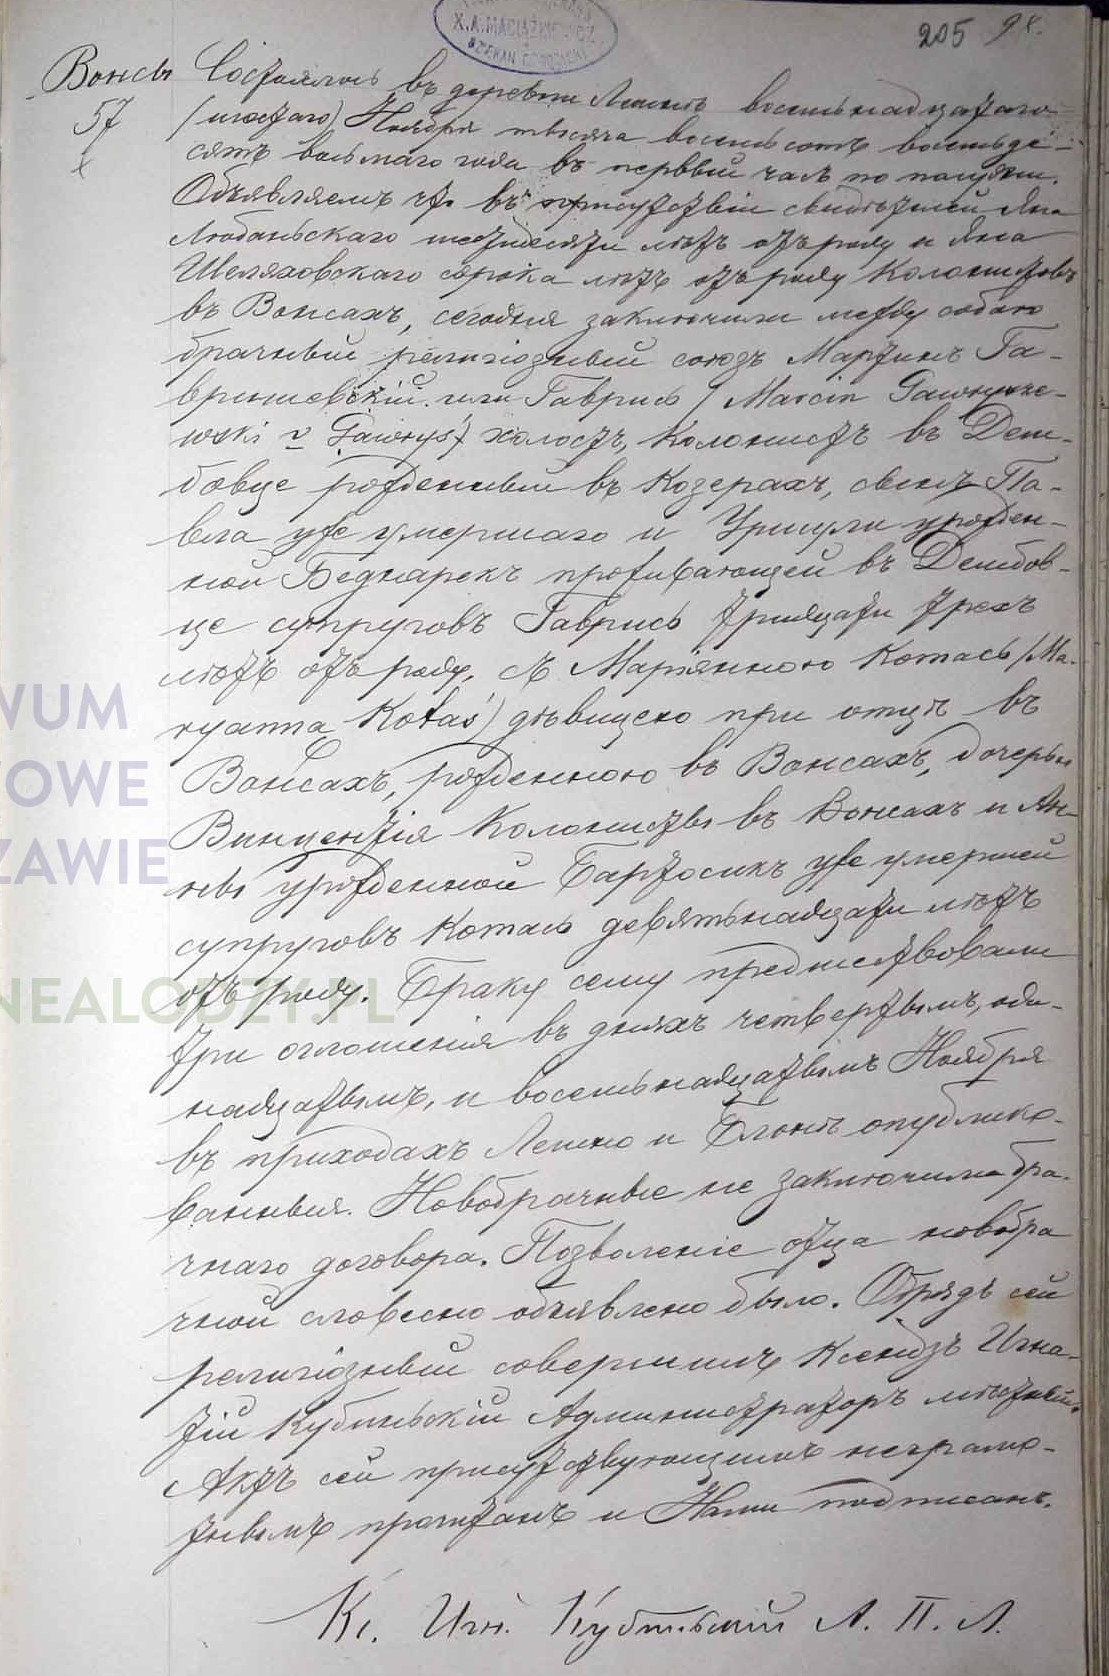 X. A. MACIĄŻKIEWICZ
DZIEKAN
205 98.
Вонсы
57
x
Состоялось въ деревни Лешнѣ восемьнадцатаго
(шестаго) Ноября тысяча восемьсотъ восемьде-
сятъ восьмаго года въ первый часъ по полудни.
Объявляемъ что въ присутствіи свидѣтелей Яна
Любаньскаго шестидесяти лѣтъ отъ роду и Яна
Шеляховскаго сорока лѣтъ отъ роду Колонистовъ
въ Вонсахъ, сегодня заключили между собою
брачный религіозный союзъ Мартинъ Га-
врышевскій или Гаврысь (Marcin Gawrysze-
wski v Gawryś) холостъ, Колонистъ въ Дем-
бовце рожденный въ Козерахъ, сынъ Па-
вла уже умершаго и Уршули урожден-
ной Беднарекъ проживающей въ Дембов-
це супруговъ Гаврысь тридцати трехъ
лѣтъ отъ роду, съ Маріянною Котась (Ma-
ryanna Kotaś) дѣвицею при отцѣ въ
Вонсахъ, рожденною въ Вонсахъ, дочерью
Винцентія Колонисты въ Вонсахъ и Ан-
ны урожденной Бартосикъ уже умершей
супруговъ Котась девятьнадцати лѣтъ
отъ роду. Браку сему предшествовали
три оглошенія въ дняхъ четвертымъ, оди-
надцатымъ, и восемьнадцатымъ Ноября
въ приходахъ Лешно и Блонѣ опублико-
ванныя. Новобрачные не заключили бра-
чнаго договора. Позволеніе отца новобра
чной словесно объявлено было. Обрядъ сей
религіозный совершилъ Ксендзъ Игна-
тій Кубиньскій Администраторъ мѣстный.
Актъ сей присутствующимъ неграмо-
тнымъ прочитанъ и Нами подписанъ.
Кс. Игн. Кубиньскій А. П. Л.
WUM
OWE
ZAWIE
NEALODZY.PL